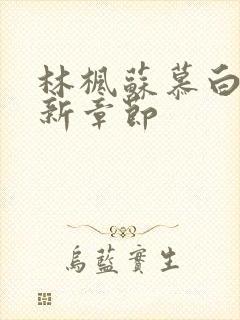 林楓蘇慕白
新章節
烏藍實生